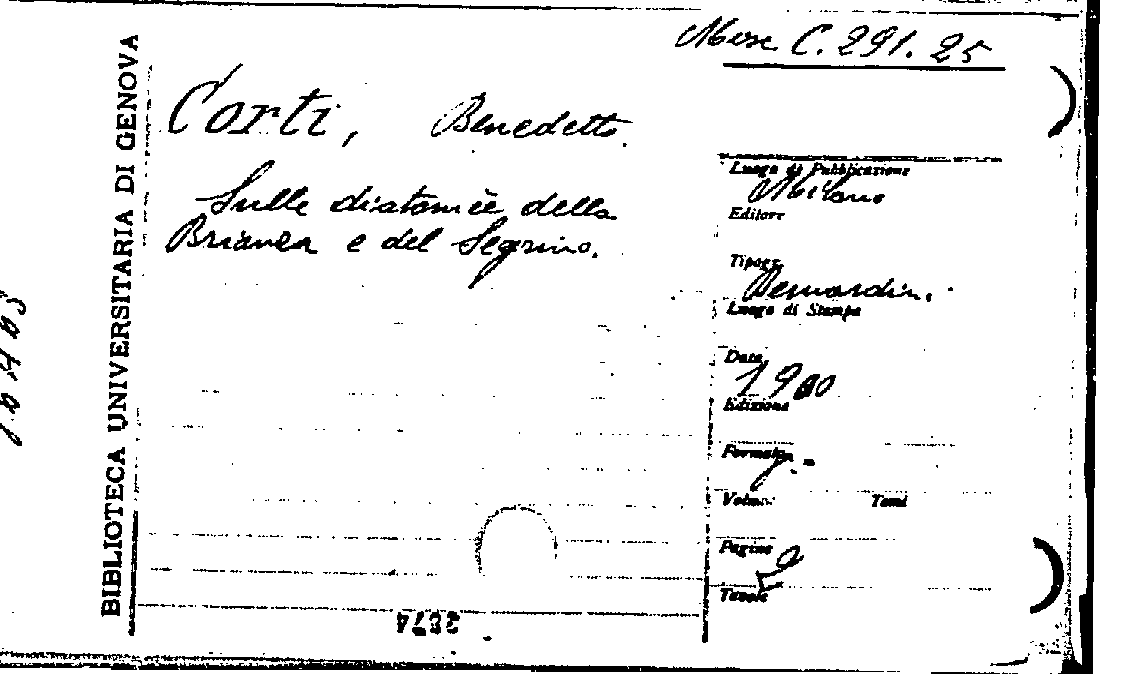 Misc C. 291. 25
BIBLIOTECA UNIVERSITARIA DI GENOVA
Corti, Benedetto.
Sulle diatomèe della
Brianza e del Segrino.
Luogo di Pubblicazione
Milano
Editore
Tipogr.
Bernardin.
Luogo di Stampa
Data
1900
Edizione
Formato
Volumi Tomi
Pagine
Tavole